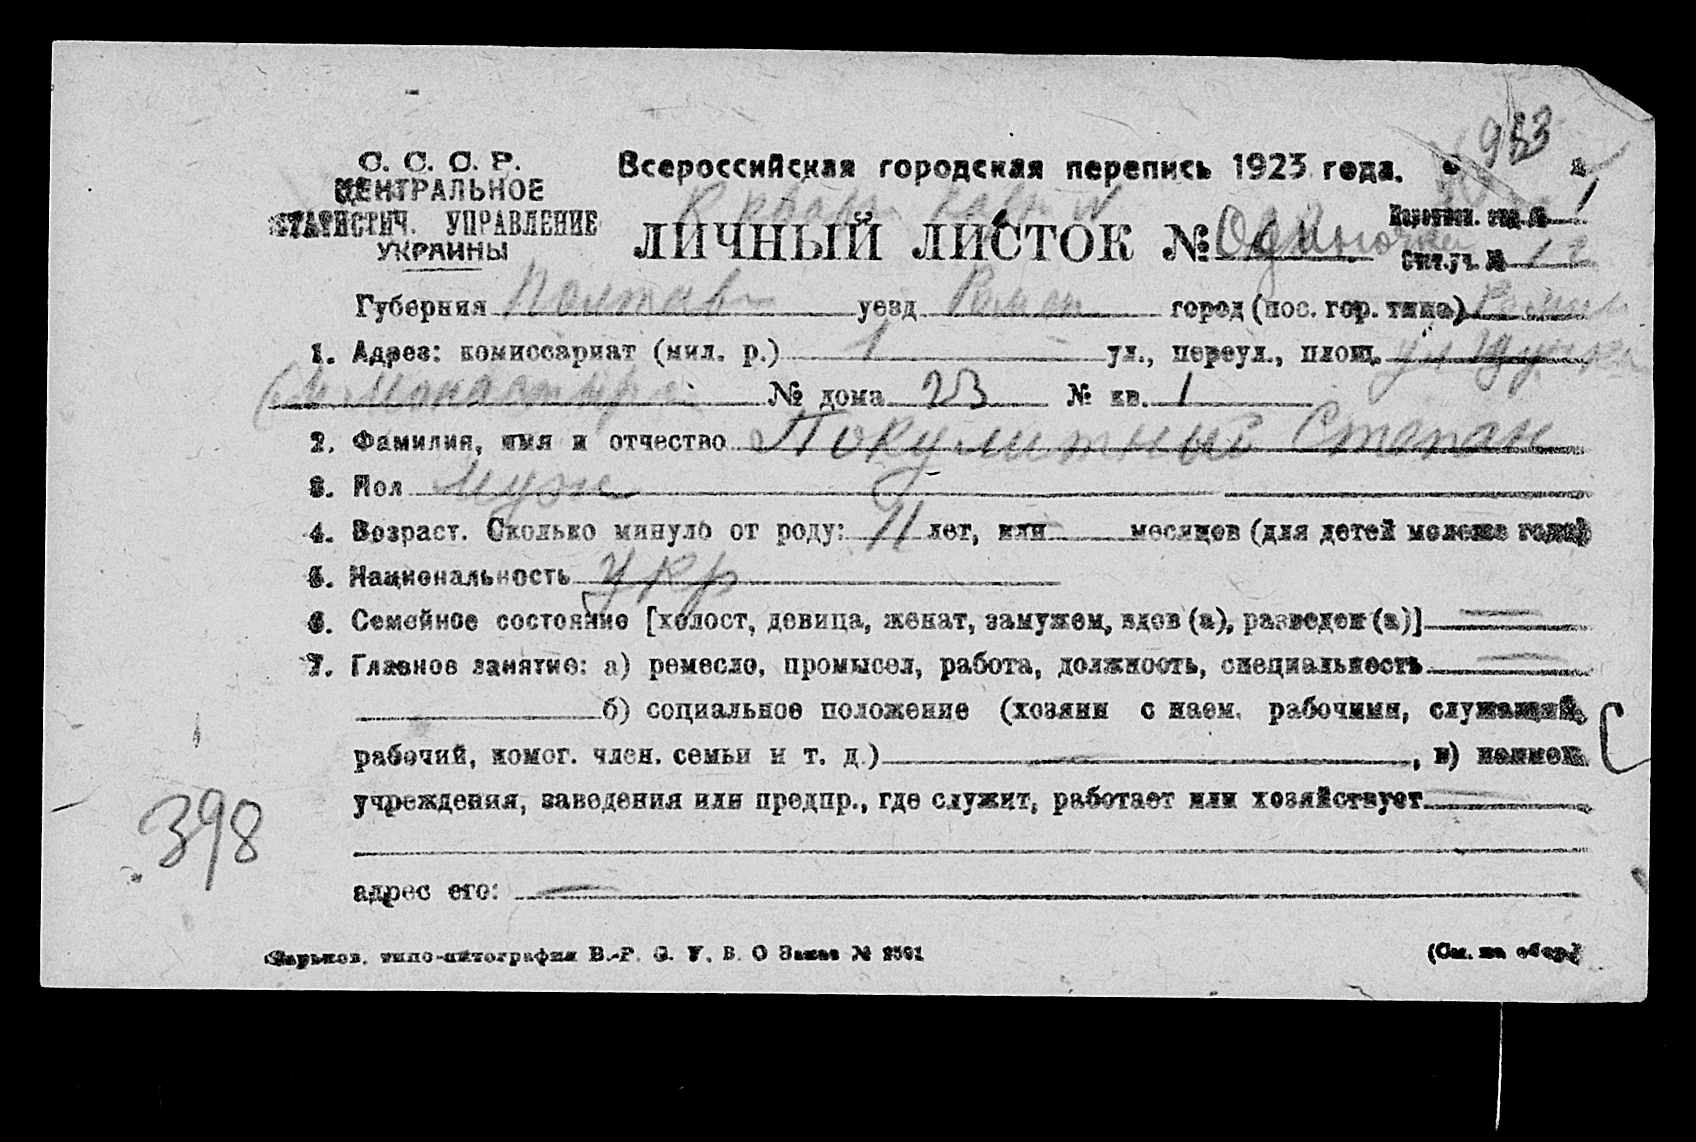 933
С. С. С. Р.
ЦЕНТРАЛЬНОЕ
СТАТИСТИЧ. УПРАВЛЕНИЕ
УКРАИНЫ
Всероссийская городская перепись 1923 года.
К кварт. карт. №
ЛИЧНЫЙ ЛИСТОК № Одиночка
Переписн. отд. № 1
Счет.уч. № 12
Губерния Полтав уезд Ромен город (пос. гор. типа) Ромны
1. Адрез: комиссариат (мил. р.) 1 ул., переул., площ. ул
№ дома 23 № кв. 1
2. Фамилия, имя и отчество Покулитный Степан
3. Пол муж
4. Возраст. Сколько минуло от роду: 11 лет, или месяцев (для детей моложе года)
5. Национальность укр
6. Семейное состояние [холост, девица, женат, замужем, вдов (а), разведен (а)]
7. Главное занятие: а) ремесло, промысел, работа, должность, специальность
б) социальное положение (хозяин с наем. рабочими, служащий,
рабочий, помог. член. семьи и т. д.) , в) наимен.
учреждения, заведения или предпр., где служит, работает или хозяйствует
398
адрес его:
Харьков. типо-литография В.-Р. С. У. В. О Заказ №
(См. на обор.)